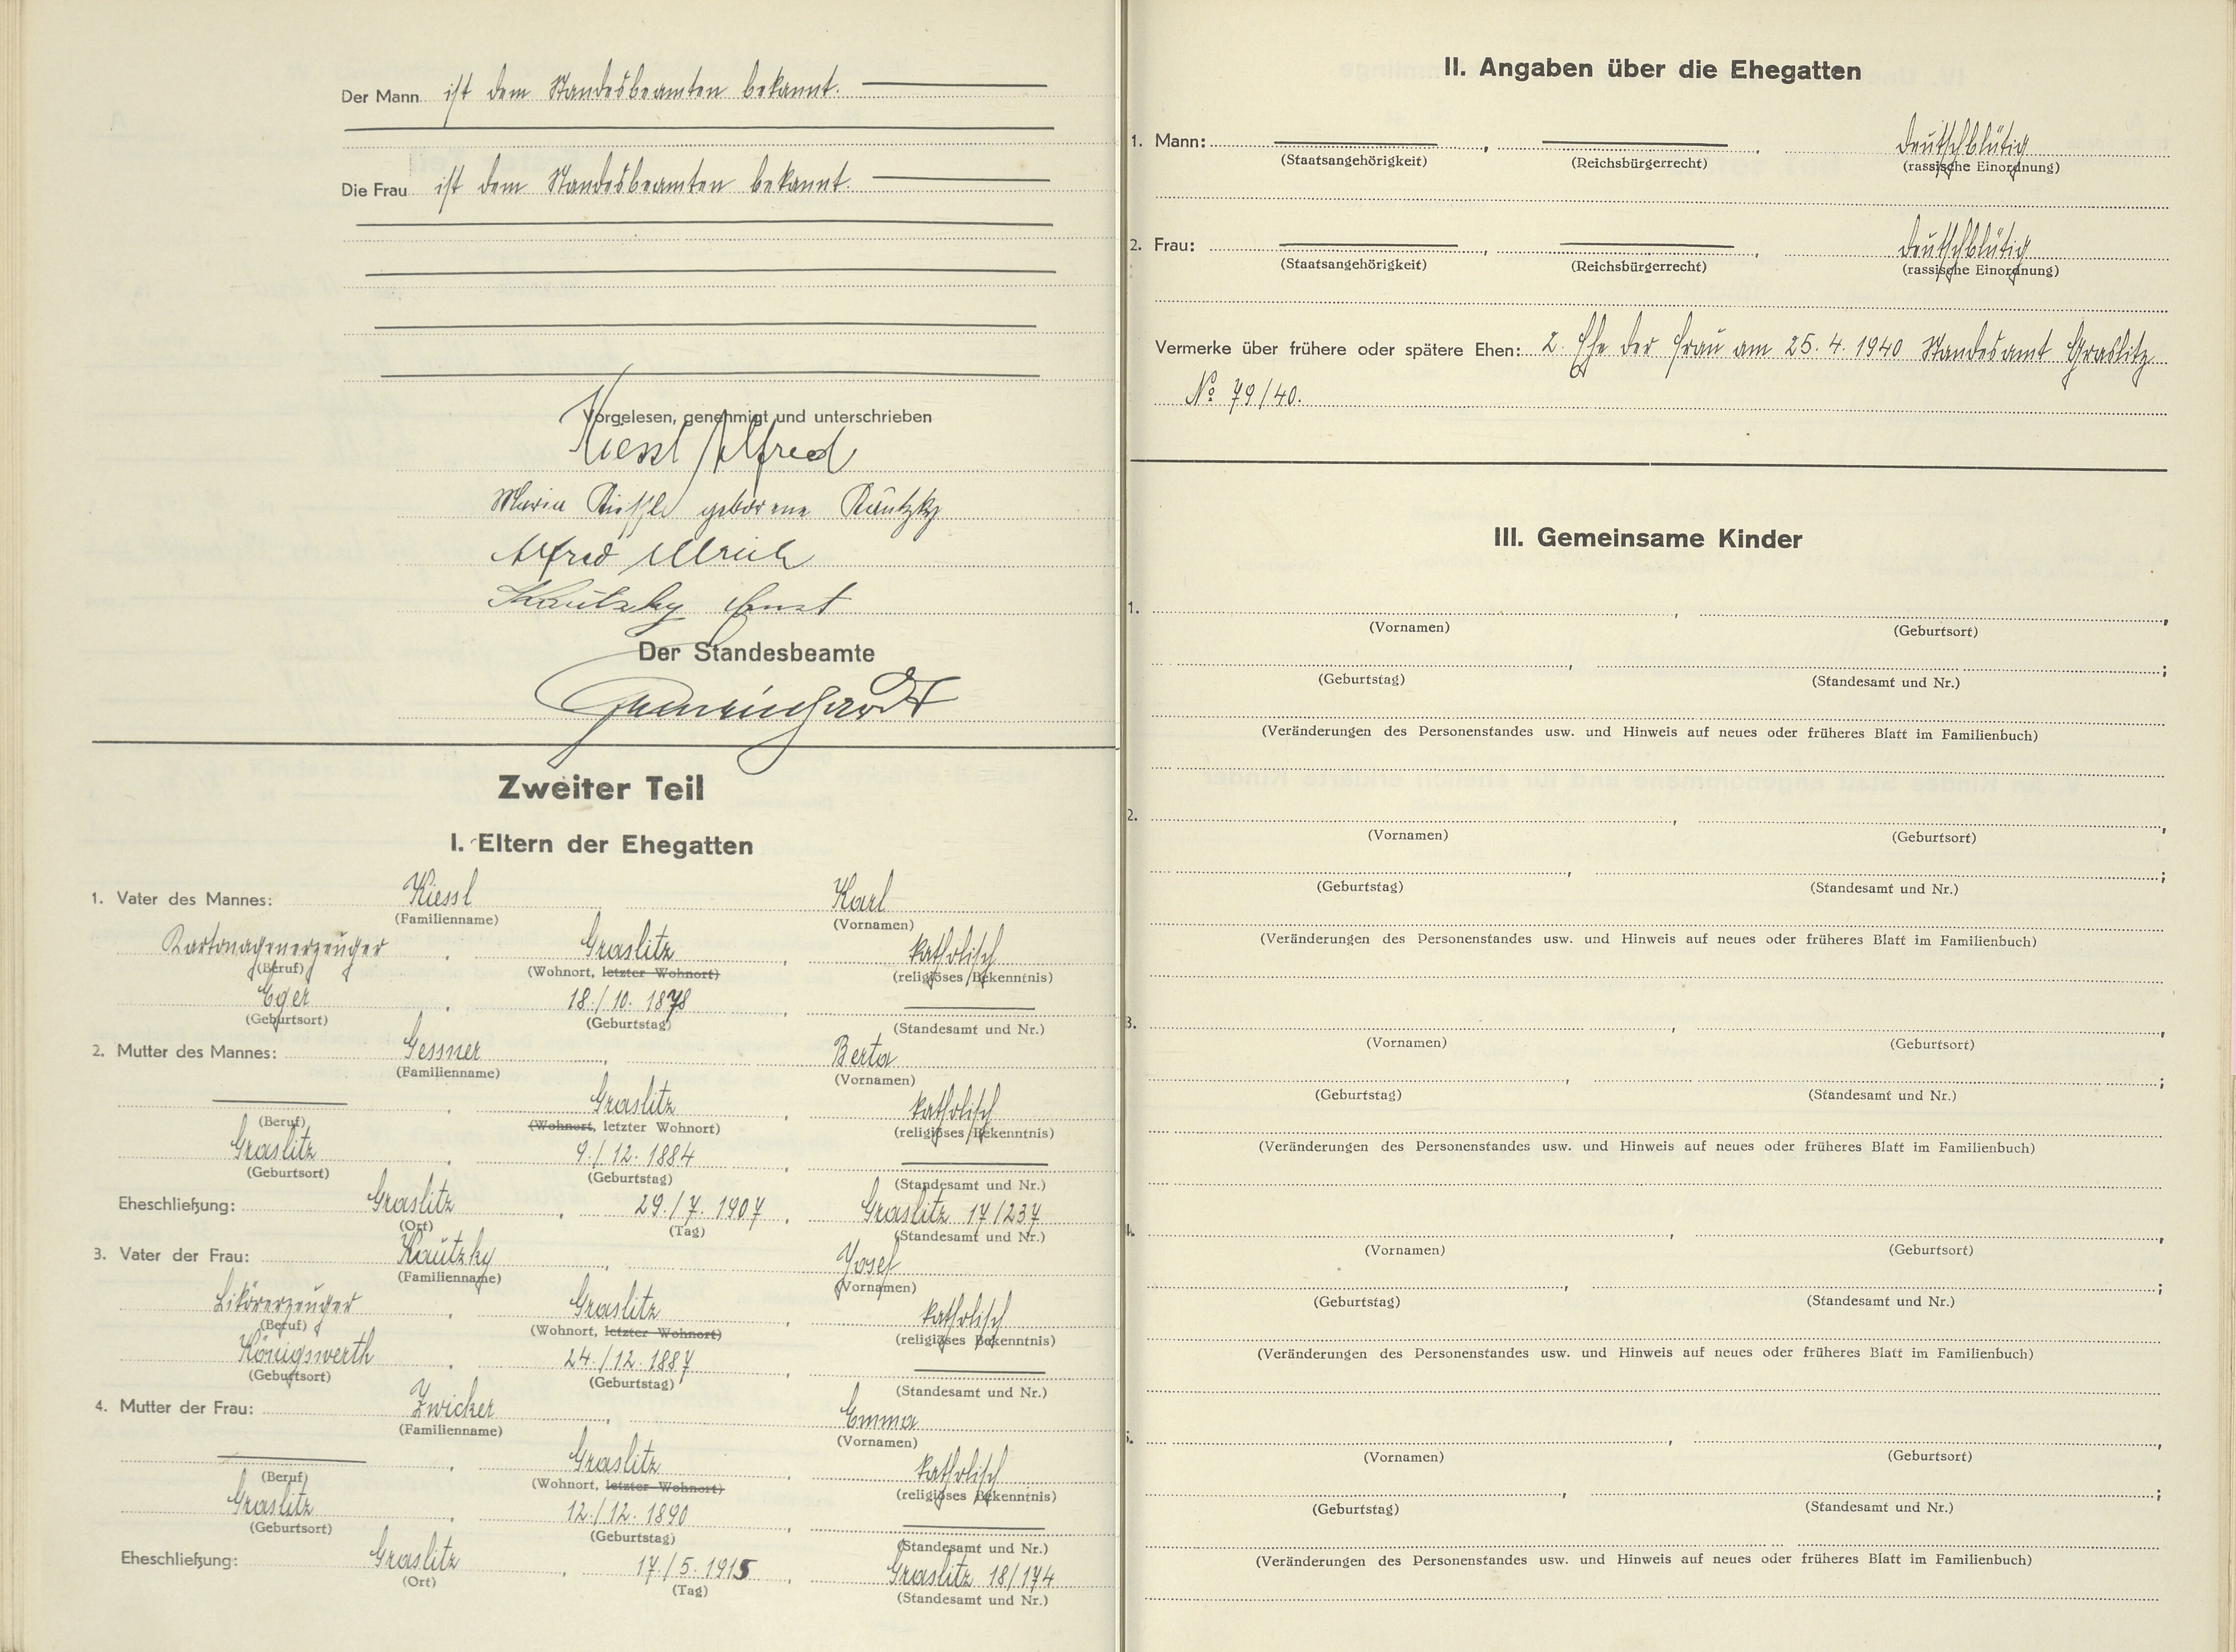 Der Mann ist dem Standesbeamten bekannt.
Die Frau ist dem Standesbeamten bekannt.
Vorgelesen, genehmigt und unterschrieben
Kiessl Alfred
Maria Kießl geborene Kautzky
Alfred Ullrich
Kautzky Ernst
Der Standesbeamte
Zweiter Teil
I. Eltern der Ehegatten
1. Vater des Mannes: Kiessl Karl
(Familienname) (Vornamen)
Kartonagenerzeuger, Graslitz, katholisch
(Beruf) (Wohnort, letzter Wohnort) (religiöses Bekenntnis)
Eger, 18./10. 1878,
(Geburtsort) (Geburtstag) (Standesamt und Nr.)
2. Mutter des Mannes: Gessner, Berta
(Familienname) (Vornamen)
Graslitz, katholisch
(Beruf) (Wohnort, letzter Wohnort) (religiöses Bekenntnis)
Graslitz, 9./12. 1884,
(Geburtsort) (Geburtstag) (Standesamt und Nr.)
Eheschließung: Graslitz, 29./7. 1907, Graslitz 17/237
(Ort) (Tag) (Standesamt und Nr.)
3. Vater der Frau: Kautzky, Josef
(Familienname) (Vornamen)
Likörerzeuger, Graslitz, katholisch
(Beruf) (Wohnort, letzter Wohnort) (religiöses Bekenntnis)
Königswerth, 24./12. 1887,
(Geburtsort) (Geburtstag) (Standesamt und Nr.)
4. Mutter der Frau: Zwicker, Emma
(Familienname) (Vornamen)
Graslitz, katholisch
(Beruf) (Wohnort, letzter Wohnort) (religiöses Bekenntnis)
Graslitz, 12./12. 1890,
(Geburtsort) (Geburtstag) (Standesamt und Nr.)
Eheschließung: Graslitz, 17./5. 1915, Graslitz 18/174
(Ort) (Tag) (Standesamt und Nr.)
II. Angaben über die Ehegatten
1. Mann: , , deutschblütig
(Staatsangehörigkeit) (Reichsbürgerrecht) (rassische Einordnung)
2. Frau: , , deutschblütig
(Staatsangehörigkeit) (Reichsbürgerrecht) (rassische Einordnung)
Vermerke über frühere oder spätere Ehen: 2. Ehe der Frau am 25. 4. 1940 Standesamt Graslitz
No 79/40.
III. Gemeinsame Kinder
1. , ,
(Vornamen) (Geburtsort)
, ;
(Geburtstag) (Standesamt und Nr.)
(Veränderungen des Personenstandes usw. und Hinweis auf neues oder früheres Blatt im Familienbuch)
2. , ,
(Vornamen) (Geburtsort)
, ;
(Geburtstag) (Standesamt und Nr.)
(Veränderungen des Personenstandes usw. und Hinweis auf neues oder früheres Blatt im Familienbuch)
3. , ,
(Vornamen) (Geburtsort)
, ;
(Geburtstag) (Standesamt und Nr.)
(Veränderungen des Personenstandes usw. und Hinweis auf neues oder früheres Blatt im Familienbuch)
4. , ,
(Vornamen) (Geburtsort)
, ;
(Geburtstag) (Standesamt und Nr.)
(Veränderungen des Personenstandes usw. und Hinweis auf neues oder früheres Blatt im Familienbuch)
5. , ,
(Vornamen) (Geburtsort)
, ;
(Geburtstag) (Standesamt und Nr.)
(Veränderungen des Personenstandes usw. und Hinweis auf neues oder früheres Blatt im Familienbuch)